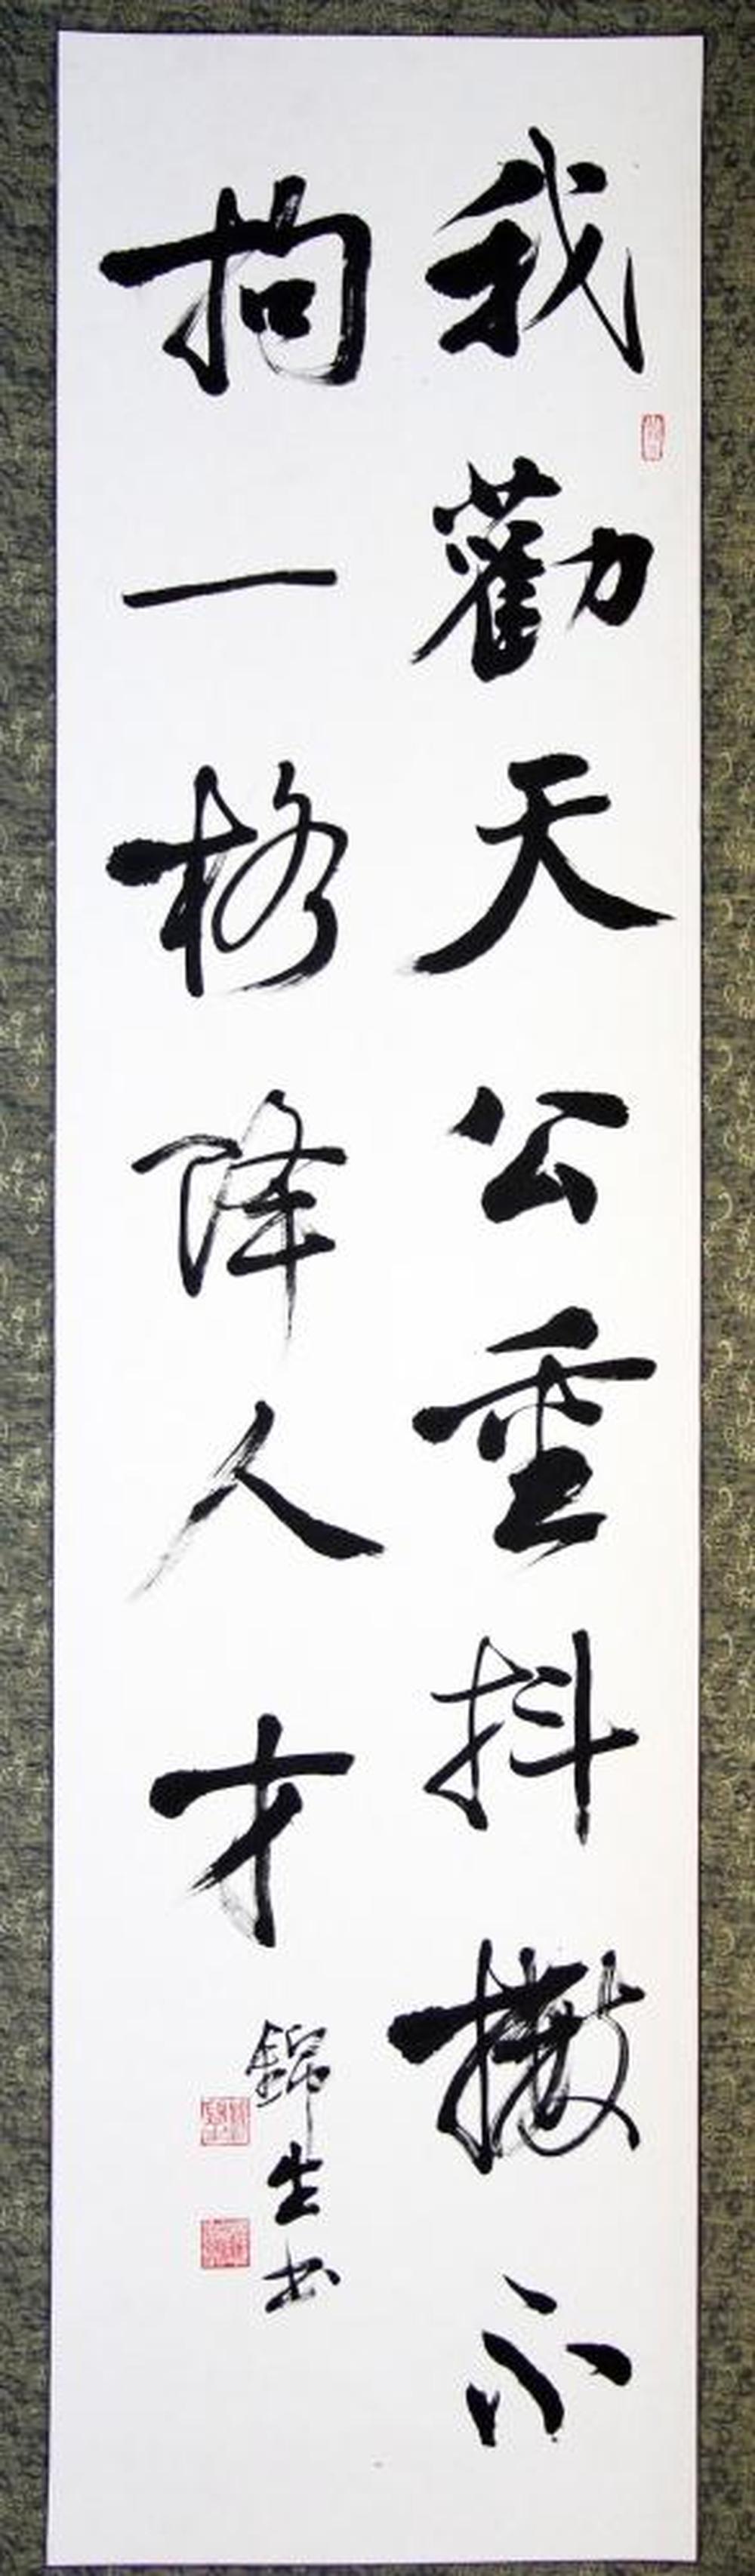 我勸天公重抖擻不
拘一格降人才
錦生书